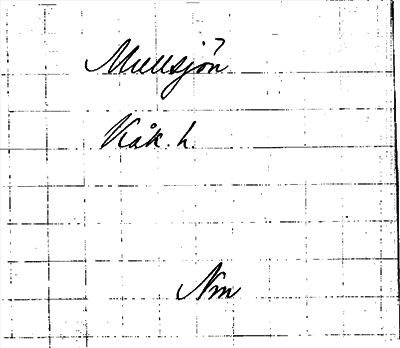 Mullsjön
Kåk. h.
Nm